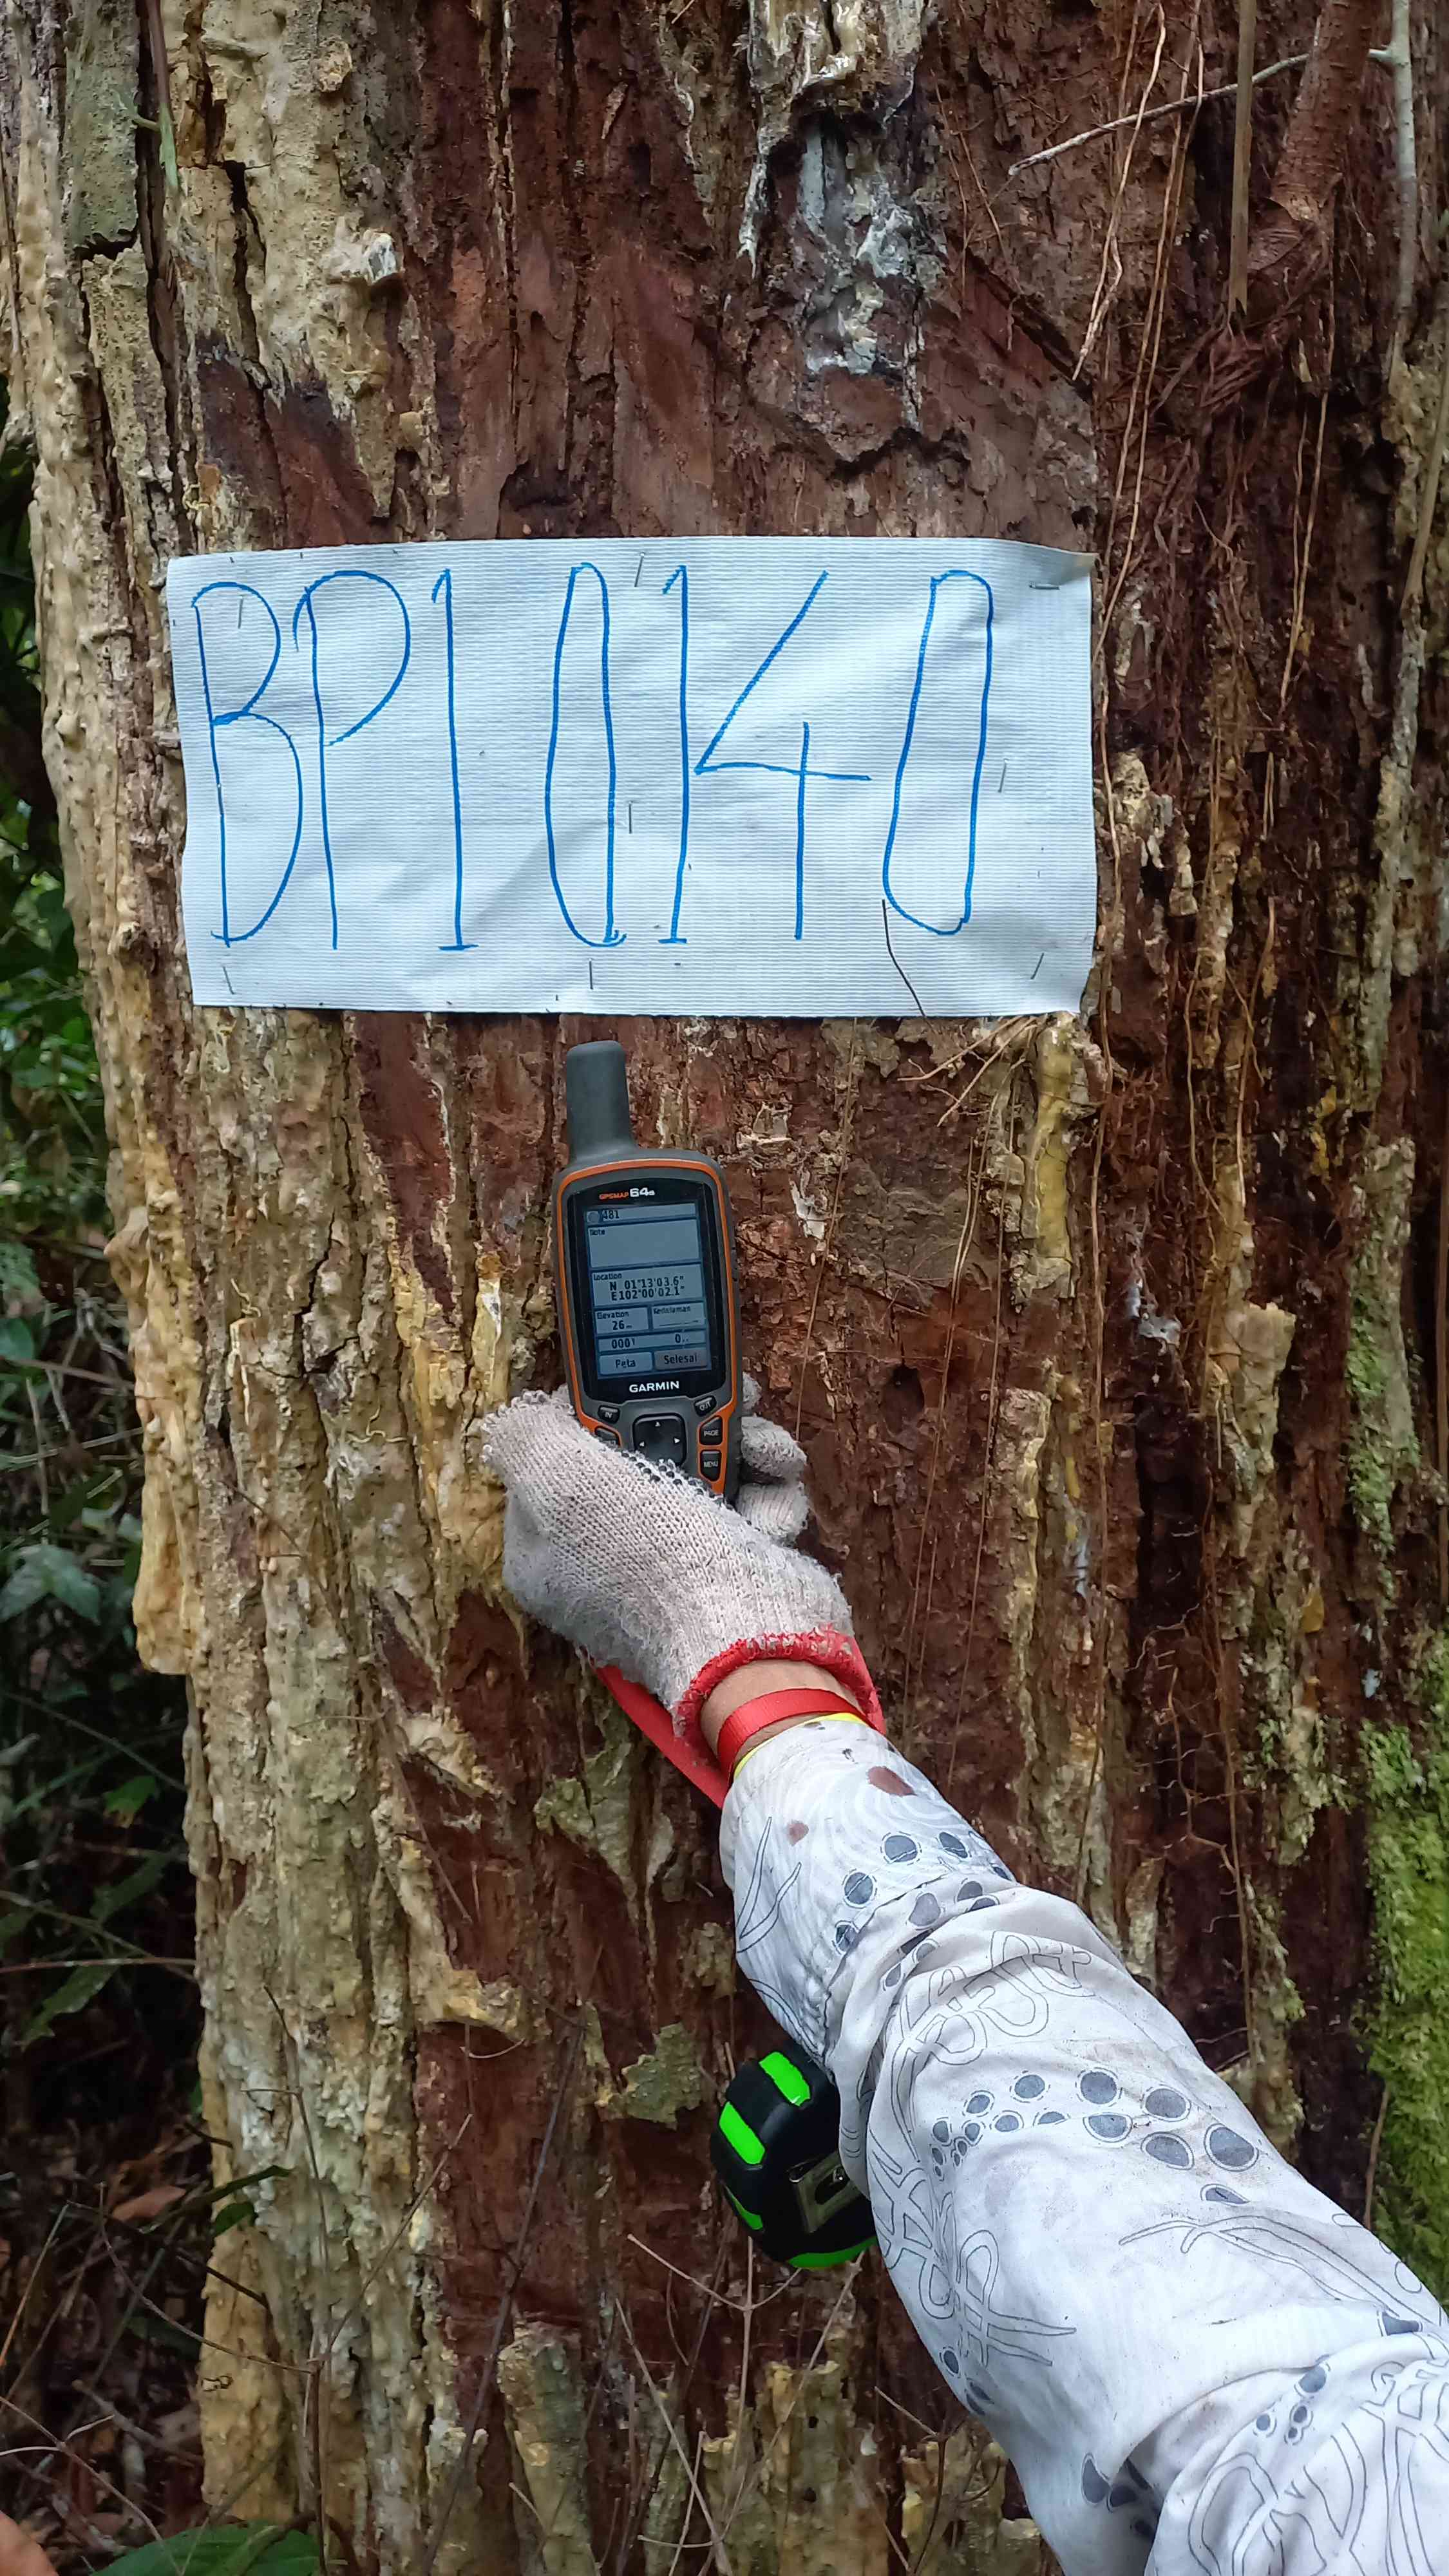 BP10140
GPSMAP 64s
481
Note
Location
N 01°13'03.6"
E102°00'02.1"
Elevation Kedalaman
26 m
0001 0
Peta Selesai
GARMIN
IN OUT
PAGE
MENU